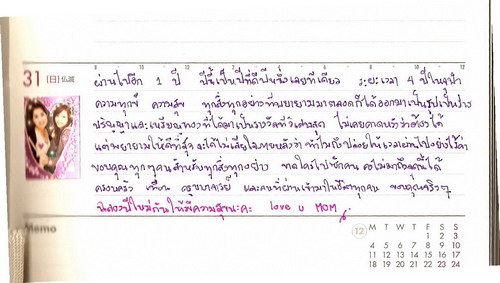 8 10 12
31 [日] 仏滅
ผ่านไปอีก 1 ปี ปีนี้เป็นปีที่ดีปีนึงเลยทีเดียว ระยะเวลา 4 ปีในจุฬา
ความทุกข์ ความสุข ทุกสิ่งทุกอย่างที่พยายามมาตลอดก็ได้ออกมาเป็นรูปเป็นร่าง
ปริญญาและเหรียญทองที่ได้มาเป็นรางวัลที่วิเศษสุด ไม่เคยคาดหวังว่าต้องได้
แต่พยายามให้ดีที่สุด จะได้ไม่เสียใจภายหลังว่า ทำไมถึงปล่อยให้เวลาผ่านไปอย่างไร้ค่า
ขอบคุณทุกๆคนสำหรับทุกสิ่งทุกอย่าง ขาดใครไปซักคน คงไม่มาถึงจุดนี้ได้
ครอบครัว เพื่อน ครูบาอาจารย์ และคนที่ผ่านเข้ามาในชีวิตทุกคน ขอบคุณจริงๆ
ฉลองปีใหม่กันให้มีความสุขนะคะ love u MOM
Memo
12 M T W T F S S
1 2 3
4 5 6 7 8 9 10
11 12 13 14 15 16 17
18 19 20 21 22 23 24